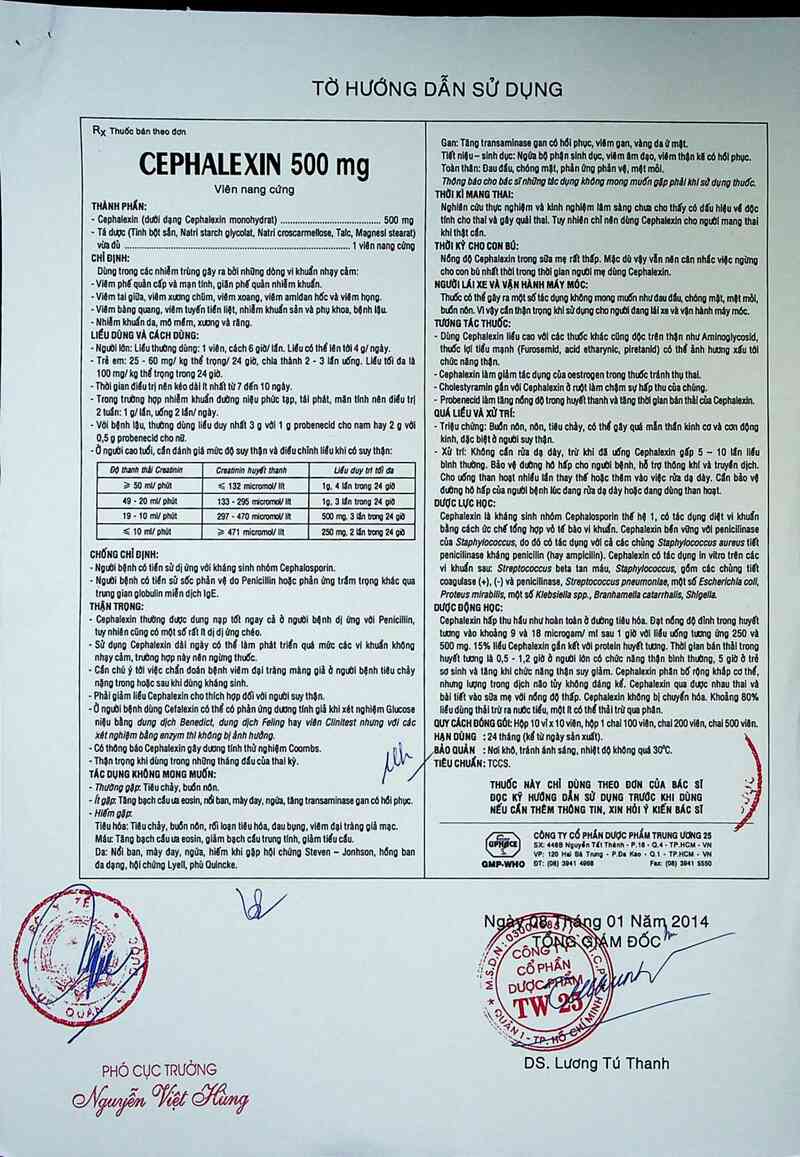 TỜ HƯỚNG DẪN SỬ DỤNG
Rx Thuốc bán theo đơn
CEPHALEXIN 500 mg
Viên nang cứng
THÀNH PHẦN:
- Cephalexin (dưới dạng Cephalexin monohydrat) ........................................ 500 mg
- Tá dược (Tinh bột sắn, Natri starch glycolat, Natri croscarmellose, Talc, Magnesi stearat)
vừa đủ ........................................................................................ 1 viên nang cứng
CHỈ ĐỊNH:
Dùng trong các nhiễm trùng gây ra bởi những dòng vi khuẩn nhạy cảm:
- Viêm phế quản cấp và mạn tính, giãn phế quản nhiễm khuẩn.
- Viêm tai giữa, viêm xương chũm, viêm xoang, viêm amidan hốc và viêm họng.
- Viêm bàng quang, viêm tuyến tiền liệt, nhiễm khuẩn sản và phụ khoa, bệnh lậu.
- Nhiễm khuẩn da, mô mềm, xương và răng.
LIỀU DÙNG VÀ CÁCH DÙNG:
- Người lớn: Liều thường dùng: 1 viên, cách 6 giờ/ lần. Liều có thể lên tới 4 g/ ngày.
- Trẻ em: 25 - 60 mg/ kg thể trọng/ 24 giờ, chia thành 2 - 3 lần uống. Liều tối đa là
100 mg/ kg thể trọng trong 24 giờ.
- Thời gian điều trị nên kéo dài ít nhất từ 7 đến 10 ngày.
- Trong trường hợp nhiễm khuẩn đường niệu phức tạp, tái phát, mãn tính nên điều trị
2 tuần: 1 g/ lần, uống 2 lần/ ngày.
- Với bệnh lậu, thường dùng liều duy nhất 3 g với 1 g probenecid cho nam hay 2 g với
0,5 g probenecid cho nữ.
- Ở người cao tuổi, cần đánh giá mức độ suy thận và điều chỉnh liều khi có suy thận:
Độ thanh thải Creatinin Creatinin huyết thanh Liều duy trì tối đa
≥ 50 ml/ phút ≤ 132 micromol/ lít 1g, 4 lần trong 24 giờ
49 - 20 ml/ phút 133 - 295 micromol/ lít 1g, 3 lần trong 24 giờ
19 - 10 ml/ phút 297 - 470 micromol/ lít 500 mg, 3 lần trong 24 giờ
≤ 10 ml/ phút ≥ 471 micromol/ lít 250 mg, 2 lần trong 24 giờ
CHỐNG CHỈ ĐỊNH:
- Người bệnh có tiền sử dị ứng với kháng sinh nhóm Cephalosporin.
- Người bệnh có tiền sử sốc phản vệ do Penicillin hoặc phản ứng trầm trọng khác qua
trung gian globulin miễn dịch IgE.
THẬN TRỌNG:
- Cephalexin thường được dung nạp tốt ngay cả ở người bệnh dị ứng với Penicillin,
tuy nhiên cũng có một số rất ít dị ứng chéo.
- Sử dụng Cephalexin dài ngày có thể làm phát triển quá mức các vi khuẩn không
nhạy cảm, trường hợp này nên ngừng thuốc.
- Cần chú ý tới việc chẩn đoán bệnh viêm đại tràng màng giả ở người bệnh tiêu chảy
nặng trong hoặc sau khi dùng kháng sinh.
- Phải giảm liều Cephalexin cho thích hợp đối với người suy thận.
- Ở người bệnh dùng Cefalexin có thể có phản ứng dương tính giả khi xét nghiệm Glucose
niệu bằng dung dịch Benedict, dung dịch Feling hay viên Clinitest nhưng với các
xét nghiệm bằng enzym thì không bị ảnh hưởng.
- Có thông báo Cephalexin gây dương tính thử nghiệm Coombs.
- Thận trọng khi dùng trong những tháng đầu của thai kỳ.
TÁC DỤNG KHÔNG MONG MUỐN:
- Thường gặp: Tiêu chảy, buồn nôn.
- Ít gặp: Tăng bạch cầu ưa eosin, nổi ban, mày đay, ngứa, tăng transaminase gan có hồi phục.
- Hiếm gặp:
Tiêu hóa: Tiêu chảy, buồn nôn, rối loạn tiêu hóa, đau bụng, viêm đại tràng giả mạc.
Máu: Tăng bạch cầu ưa eosin, giảm bạch cầu trung tính, giảm tiểu cầu.
Da: Nổi ban, mày đay, ngứa, hiếm khi gặp hội chứng Steven – Jonhson, hồng ban
đa dạng, hội chứng Lyell, phù Quincke.
Gan: Tăng transaminase gan có hồi phục, viêm gan, vàng da ứ mật.
Tiết niệu – sinh dục: Ngứa bộ phận sinh dục, viêm âm đạo, viêm thận kẽ có hồi phục.
Toàn thân: Đau đầu, chóng mặt, phản ứng phản vệ, mệt mỏi.
Thông báo cho bác sĩ những tác dụng không mong muốn gặp phải khi sử dụng thuốc.
THỜI KÌ MANG THAI:
Nghiên cứu thực nghiệm và kinh nghiệm lâm sàng chưa cho thấy có dấu hiệu về độc
tính cho thai và gây quái thai. Tuy nhiên chỉ nên dùng Cephalexin cho người mang thai
khi thật cần.
THỜI KỲ CHO CON BÚ:
Nồng độ Cephalexin trong sữa mẹ rất thấp. Mặc dù vậy vẫn nên cân nhắc việc ngừng
cho con bú nhất thời trong thời gian người mẹ dùng Cephalexin.
NGƯỜI LÁI XE VÀ VẬN HÀNH MÁY MÓC:
Thuốc có thể gây ra một số tác dụng không mong muốn như đau đầu, chóng mặt, mệt mỏi,
buồn nôn. Vì vậy cẩn thận trọng khi sử dụng cho người đang lái xe và vận hành máy móc.
TƯƠNG TÁC THUỐC:
- Dùng Cephalexin liều cao với các thuốc khác cũng độc trên thận như Aminoglycosid,
thuốc lợi tiểu mạnh (Furosemid, acid etharynic, piretanid) có thể ảnh hương xấu tới
chức năng thận.
- Cephalexin làm giảm tác dụng của oestrogen trong thuốc tránh thụ thai.
- Cholestyramin gắn với Cephalexin ở ruột làm chậm sự hấp thu của chúng.
- Probenecid làm tăng nồng độ trong huyết thanh và tăng thời gian bán thải của Cephalexin.
QUÁ LIỀU VÀ XỬ TRÍ:
- Triệu chứng: Buồn nôn, nôn, tiêu chảy, có thể gây quá mẫn thần kinh cơ và cơn động
kinh, đặc biệt ở người suy thận.
- Xử trí: Không cần rửa dạ dày, trừ khi đã uống Cephalexin gấp 5 – 10 lần liều
bình thường. Bảo vệ đường hô hấp cho người bệnh, hỗ trợ thông khí và truyền dịch.
Cho uống than hoạt nhiều lần thay thế hoặc thêm vào việc rửa dạ dày. Cần bảo vệ
đường hô hấp của người bệnh lúc đang rửa dạ dày hoặc đang dùng than hoạt.
DƯỢC LỰC HỌC:
Cephalexin là kháng sinh nhóm Cephalosporin thế hệ 1, có tác dụng diệt vi khuẩn
bằng cách ức chế tổng hợp vỏ tế bào vi khuẩn. Cephalexin bền vững với penicilinase
của Staphylococcus, do đó có tác dụng với cả các chủng Staphylococcus aureus tiết
penicilinase kháng penicilin (hay ampicilin). Cephalexin có tác dụng in vitro trên các
vi khuẩn sau: Streptococcus beta tan máu, Staphylococcus, gồm các chủng tiết
coagulase (+), (-) và penicilinase, Streptococcus pneumoniae, một số Escherichia coli,
Proteus mirabilis, một số Klebsiella spp., Branhamella catarrhalis, Shigella.
DƯỢC ĐỘNG HỌC:
Cephalexin hấp thu hầu như hoàn toàn ở đường tiêu hóa. Đạt nồng độ đỉnh trong huyết
tương vào khoảng 9 và 18 microgam/ ml sau 1 giờ với liều uống tương ứng 250 và
500 mg. 15% liều Cephalexin gắn kết với protein huyết tương. Thời gian bán thải trong
huyết tương là 0,5 - 1,2 giờ ở người lớn có chức năng thận bình thường, 5 giờ ở trẻ
sơ sinh và tăng khi chức năng thận suy giảm. Cephalexin phân bố rộng khắp cơ thể,
nhưng lượng trong dịch não tủy không đáng kể. Cephalexin qua được nhau thai và
bài tiết vào sữa mẹ với nồng độ thấp. Cephalexin không bị chuyển hóa. Khoảng 80%
liều dùng thải trừ ra nước tiểu, một ít có thể thải trừ qua phân.
QUY CÁCH ĐÓNG GÓI: Hộp 10 vỉ x 10 viên, hộp 1 chai 100 viên, chai 200 viên, chai 500 viên.
HẠN DÙNG : 24 tháng (kể từ ngày sản xuất).
BẢO QUẢN : Nơi khô, tránh ánh sáng, nhiệt độ không quá 30°C.
TIÊU CHUẨN: TCCS.
THUỐC NÀY CHỈ DÙNG THEO ĐƠN CỦA BÁC SĨ
ĐỌC KỸ HƯỚNG DẪN SỬ DỤNG TRƯỚC KHI DÙNG
NẾU CẦN THÊM THÔNG TIN, XIN HỎI Ý KIẾN BÁC SĨ
UPHACE
GMP-WHO
CÔNG TY CỔ PHẦN DƯỢC PHẨM TRUNG ƯƠNG 25
SX: 448B Nguyễn Tất Thành - P.18 - Q.4 - TP.HCM - VN
VP: 120 Hai Bà Trưng - P.Đa Kao - Q.1 - TP.HCM - VN
ĐT: (08) 3941 4968 Fax: (08) 3941 5550
Ngày 08 Tháng 01 Năm 2014
TỔNG GIÁM ĐỐC
CÔNG TY
CỔ PHẦN
DƯỢC PHẨM
TW 25
QUẬN 1 - TP. HỒ CHÍ MINH
DS. Lương Tú Thanh
BỘ Y TẾ
PHÓ CỤC TRƯỞNG
Nguyễn Việt Hùng